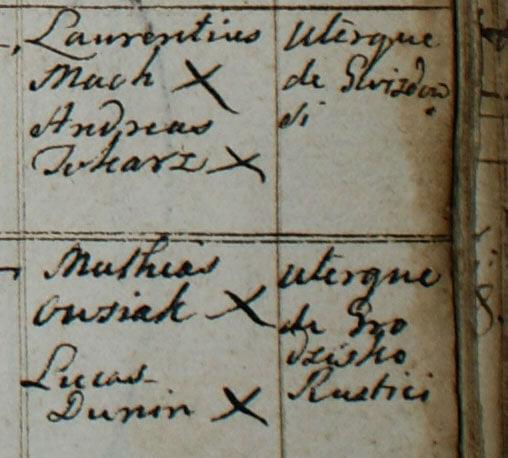 Laurentius
Mach X
Andreas
Tokarz X
Uterque
de Gwizdow
si
Mathias
Owsiak X
Lucas
Dunin X
uterque
de Gro
dzisko
Rustici